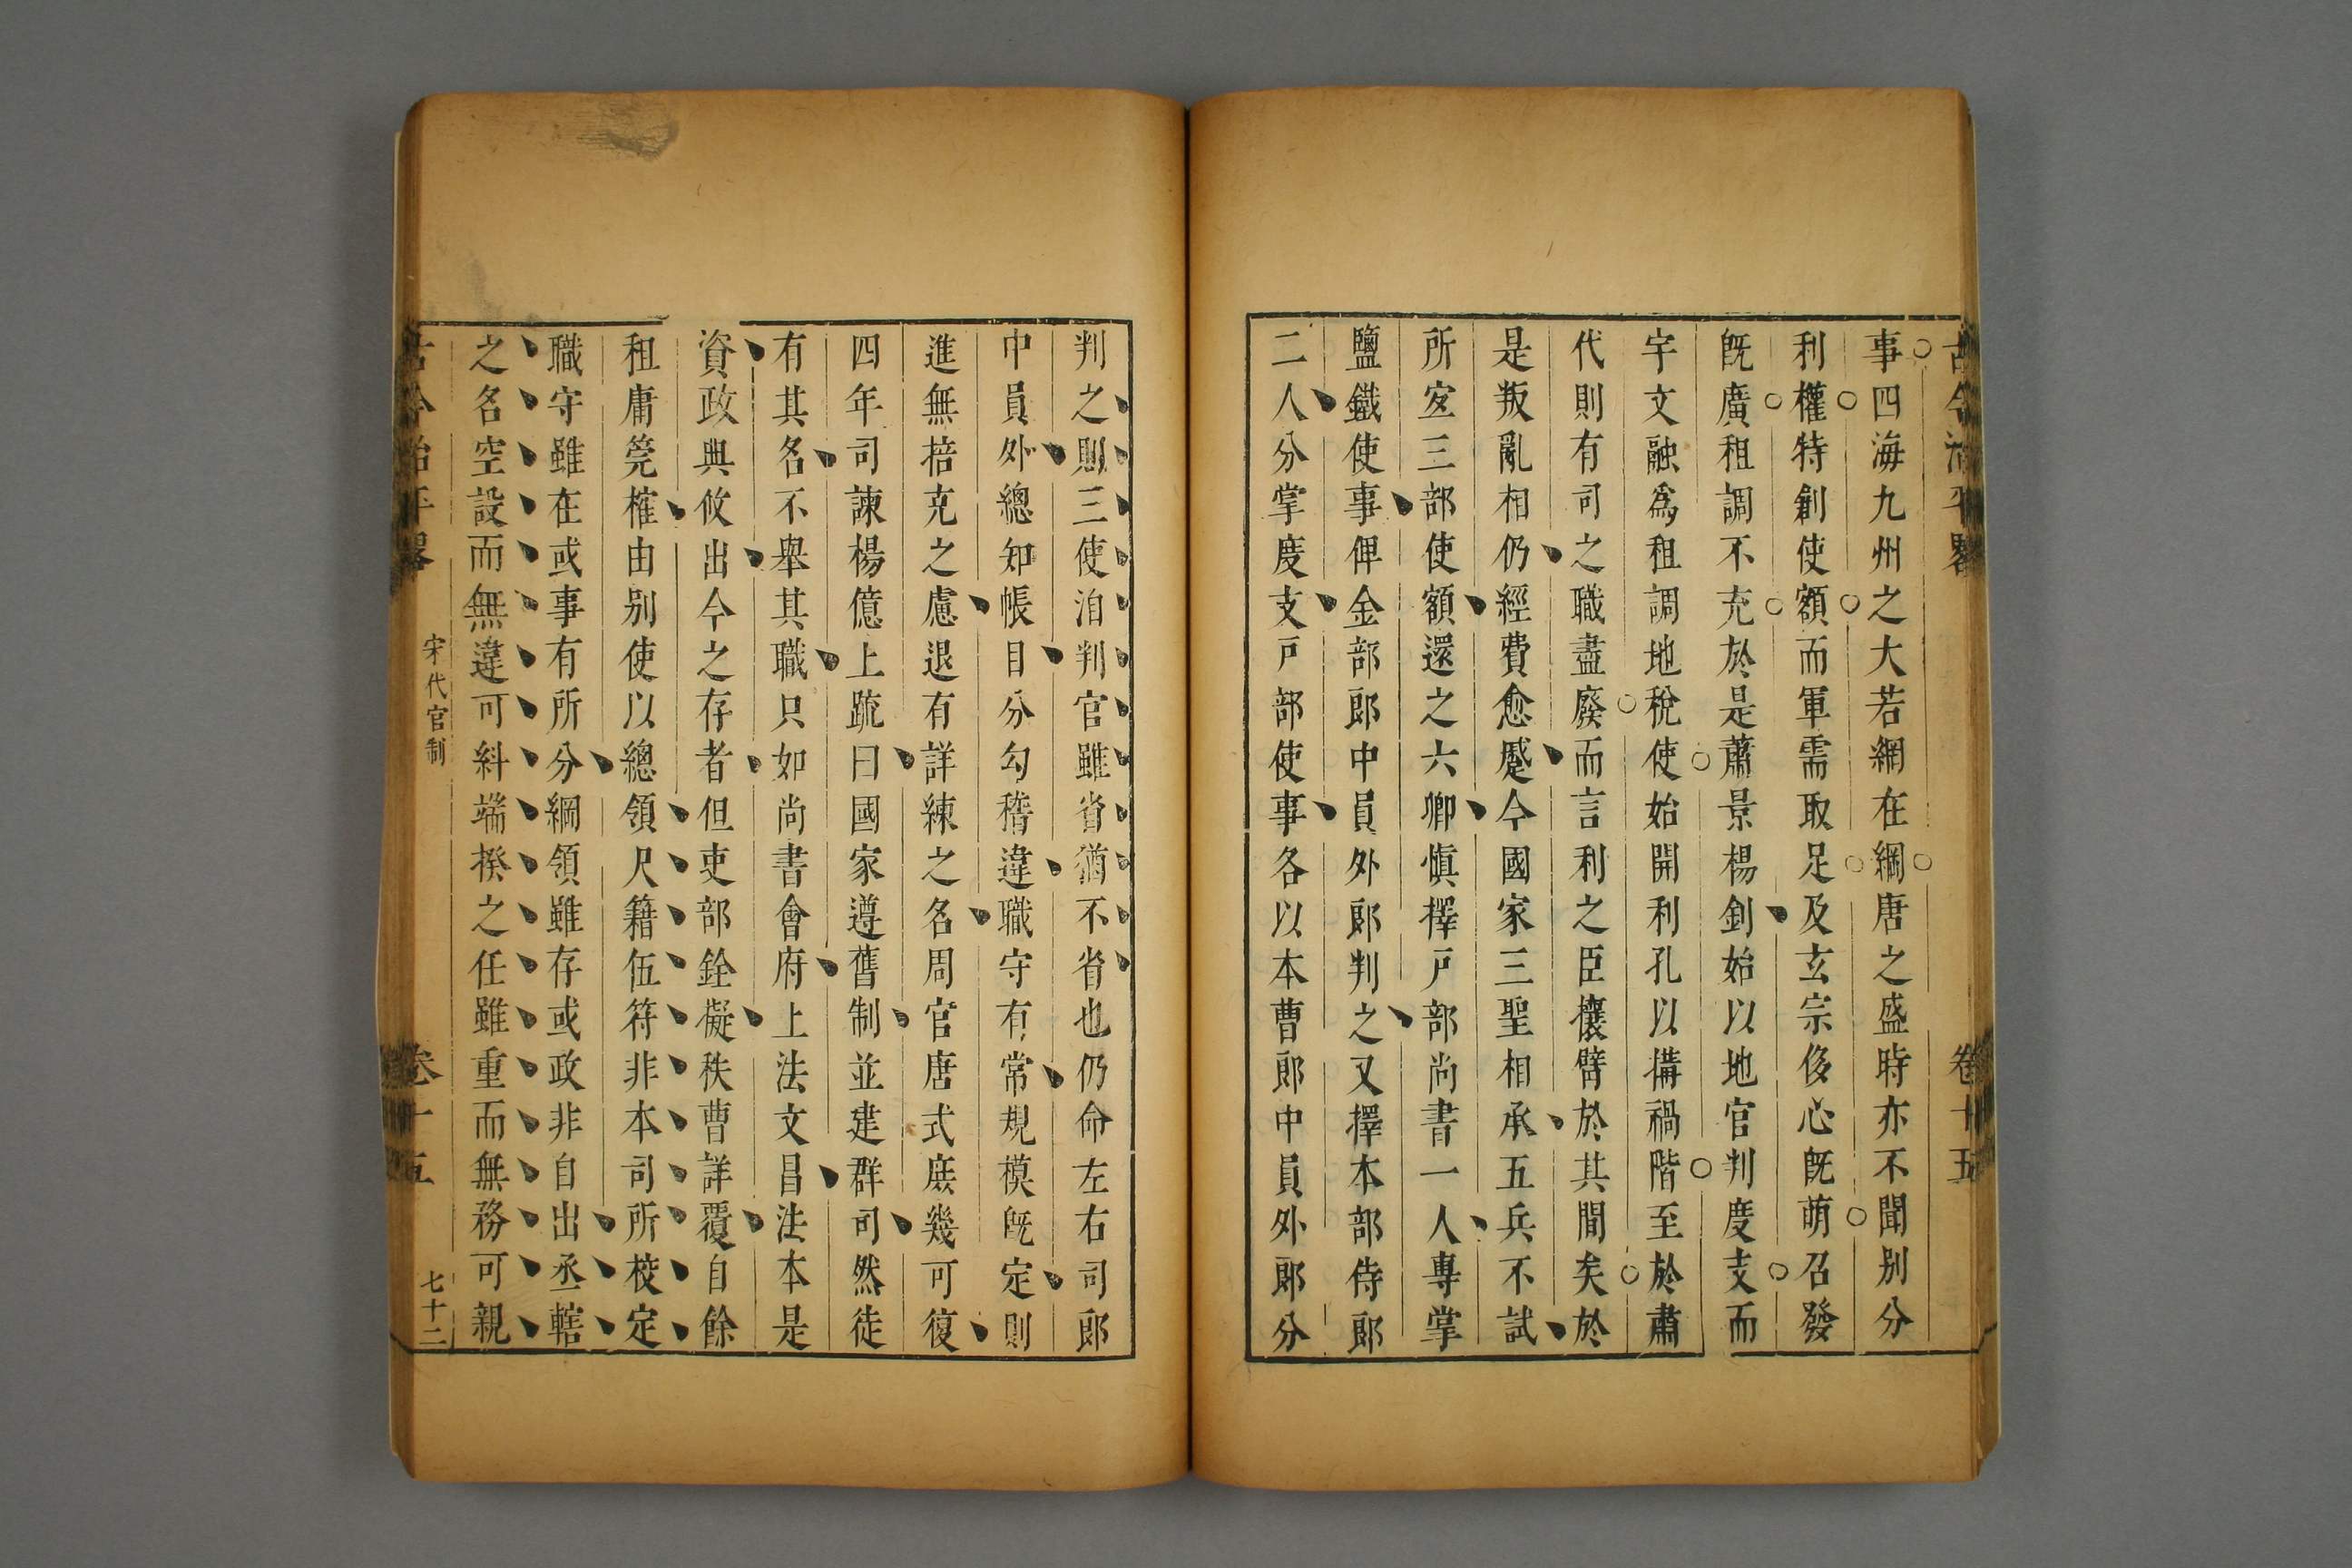 古今治平畧 卷十五
事四海九州之大若網在綱唐之盛時亦不聞別分
利權特創使額而軍需取足及玄宗侈心旣萌召發
旣廣租調不充於是蕭景楊釗始以地官判度支而
宇文融爲租調地稅使始開利孔以搆禍階至於肅
代則有司之職盡廢而言利之臣攘臂於其間矣於
是叛亂相仍經費愈蹙今國家三聖相承五兵不試
所宜三部使額還之六卿愼擇戸部尚書一人專掌
鹽鐵使事俾金部郎中員外郎判之又擇本部侍郎
二人分掌度支戸部使事各以本曹郎中員外郎分
判之則三使洎判官雖省猶不省也仍命左右司郎
中員外總知帳目分勾稽違職守有常規模旣定則
進無掊克之慮退有詳練之名周官唐式庶幾可復
四年司諫楊億上疏曰國家遵舊制並建群司然徒
有其名不舉其職只如尚書會府上法文昌法本是
資政典攸出今之存者但吏部銓擬秩曹詳覆自餘
租庸筦榷由別使以總領尺籍伍符非本司所校定
職守雖在或事有所分綱領雖存或政非自出丞轄
之名空設而無違可糾端揆之任雖重而無務可親
古今治平畧 宋代官制 卷十五 七十二